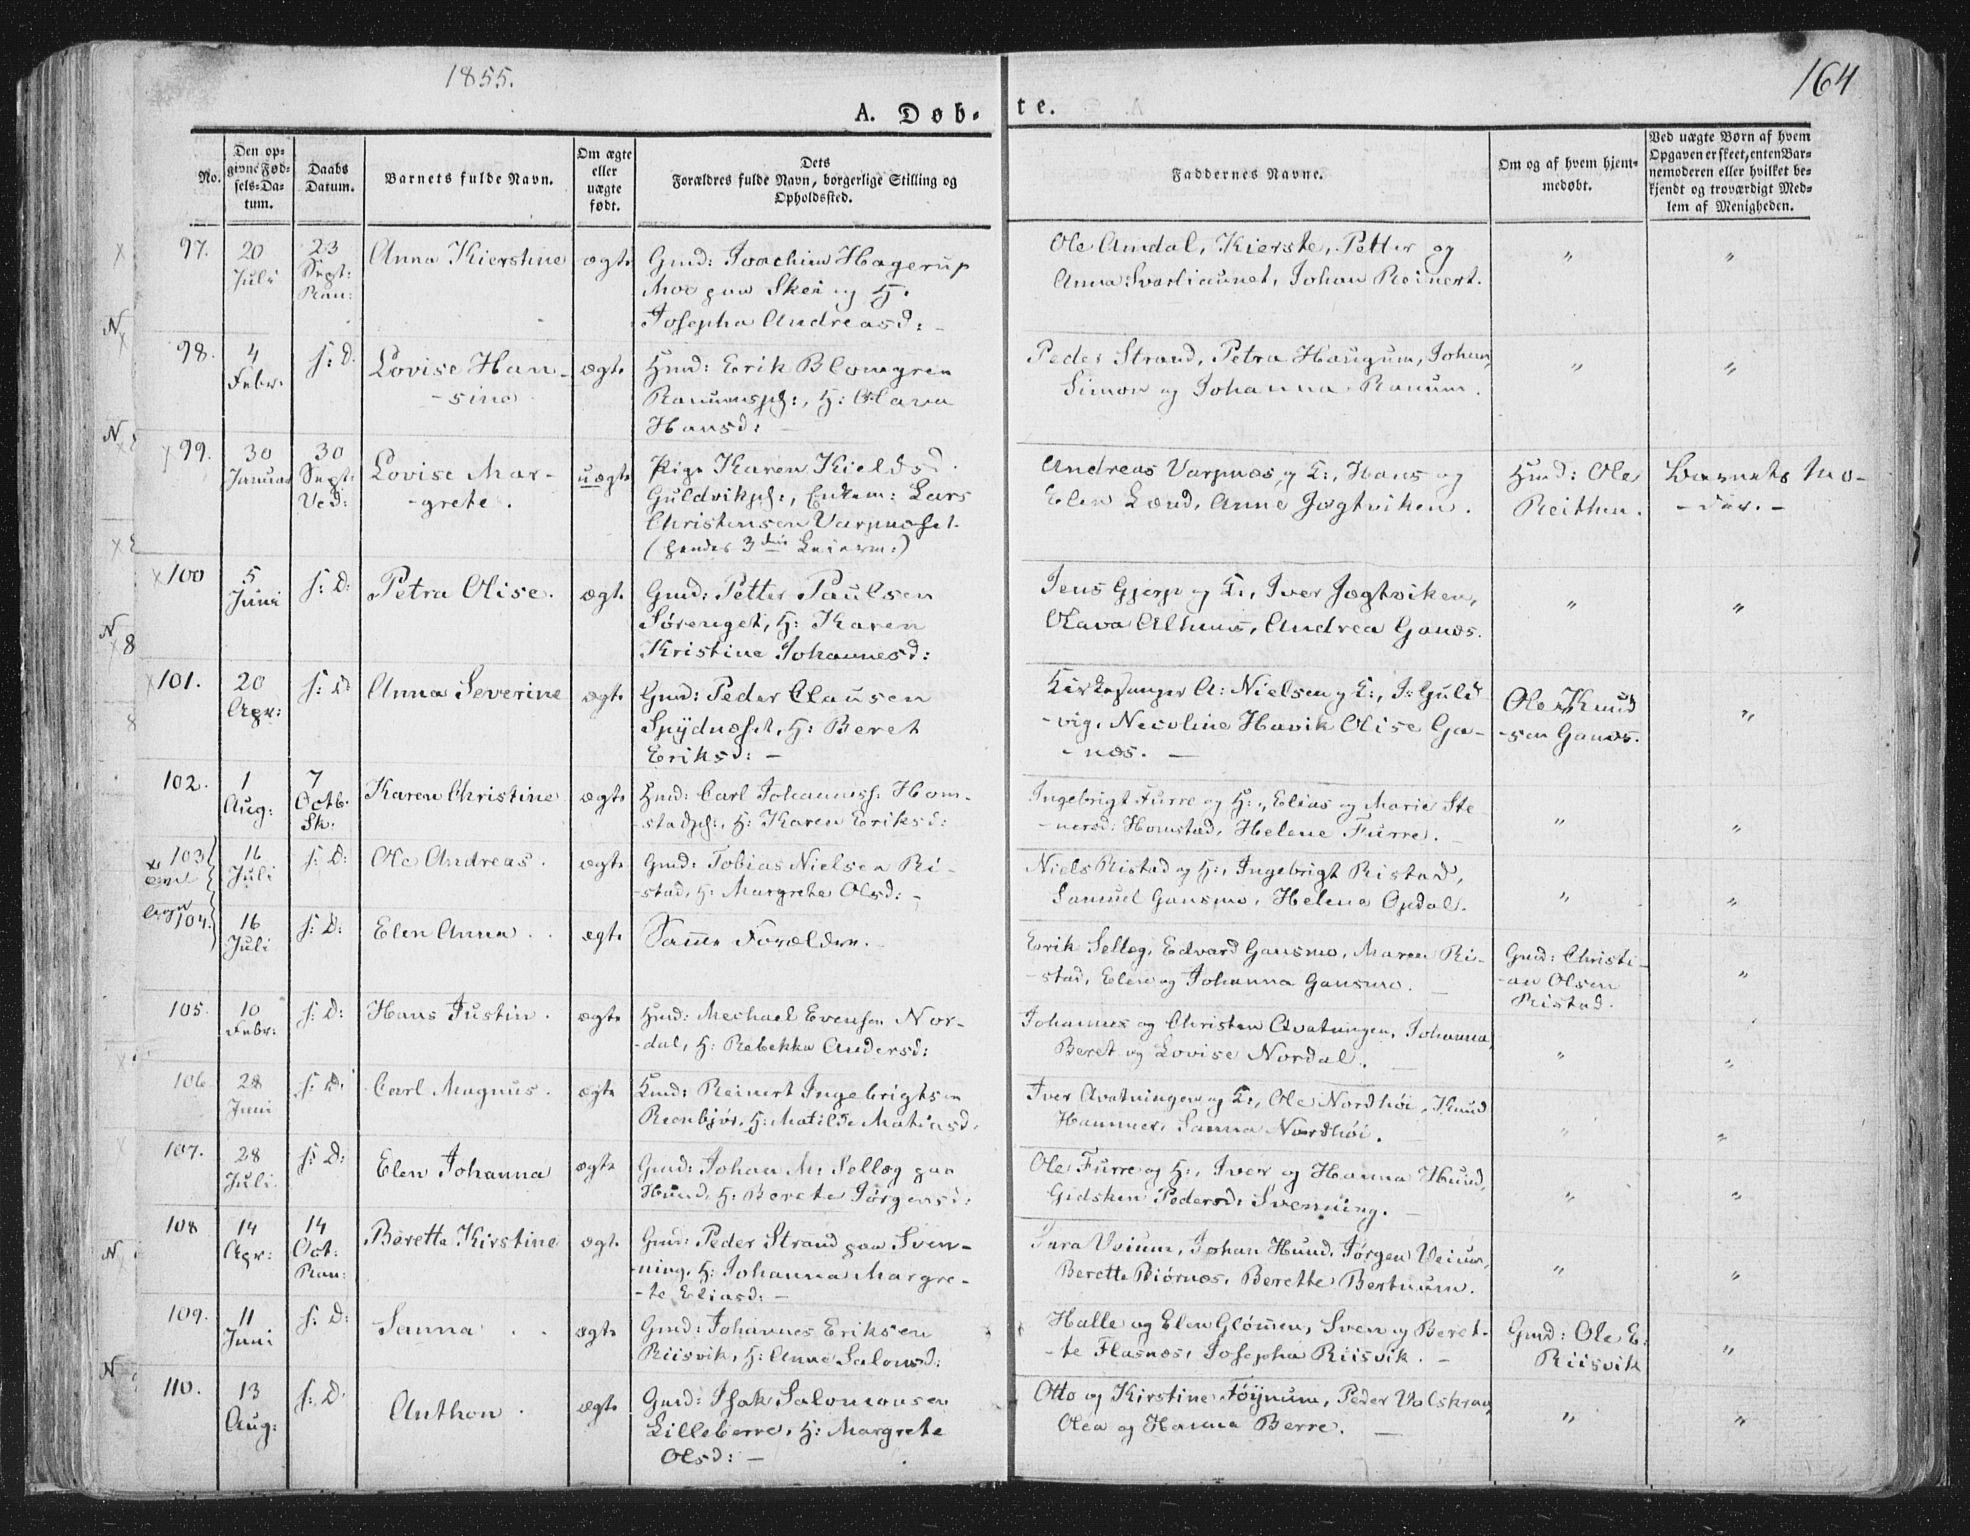 1855.
164
A. Døb-te.
No.
Den op-
givne Fød-
sels-Da-
tum.
Daabs
Datum.
Barnets fulde Navn.
Om ægte
eller
uægte
født.
Dets
Forældres fulde Navn, borgerlige Stilling og
Opholdssted.
Faddernes Navne.
Om og af hvem hjem-
medøbt.
Ved uægte Børn af hvem
Opgaven er skeet, enten Bar-
nemoderen eller hvilket be-
kjendt og troværdigt Med-
lem af Menigheden.
97.
20
Juli
23
Sept:
Ran:
Anna Kierstine
ægte
Gmd: Joachim Hagerup
Moe paa Skei og H.
Josepha Andreasd: -
Ole Amdal, Kierste, Petter og
Anna Svarliaunet, Johan Reinert.
"
"
98.
4
Febr.
s: D.
Lovise Han-
-sine
ægte
Hmd: Erik Blomgren
Ranumspl:, H: Olava
Hansd: -
Peder Strand, Petra Haugum, Johan,
Simon og Johanna Ranum.
"
"
99.
30
Januar
30
Sept:
Ved:
Lovise Mar-
-grete.
uægte
Pige Karen Kieldsd.
Guldvikpl:, Enkem: Lars
Christensen Varpneset.
(hendes 3die Leierm:)
Andreas Varpnes og K:, Hans og
Elen Lænd, Anne Jægtviken.
Hmd: Ole
Reithen.
Barnets Mo-
-der. -
100
5
Juni
s: D:
Petra Olise.
ægte
Gmd: Petter Paulsen
Sørenget, H: Karen
Kristine Johannesd:
Jens Gjerp og K:, Iver Jægtviken,
Olava Alhuus, Andrea Ganæs.
"
"
101.
20
Apr:
s: D:
Anna Severine
ægte
Gmd: Peder Clausen
Spydneset, H: Beret
Eriksd: -
Kirkesanger A: Nielsen og K:, J: Guld
-vig, Nicoline Havik Olise Ga-
-næs. -
Ole Knud
-sen Ganæs.
"
102.
1
Aug:
7
Octb.
Sk.
Karen Christine
ægte
Hmd: Carl Johanness: Hom-
stadpl:, H: Karen Eriksd:
Ingebrigt Furre og H:, Elias og Marie Ste
-nersd: Homstad, Helene Furre. -
"
"
103
16
Juli
s: D:
Ole Andreas.
ægte
Gmd: Tobias Nielsen Ri-
-stad, H: Margrete Olsd: -
Niels Ristad og H:, Ingebrigt Ristad,
Samuel Gansmo, Helena Opdal.
"
"
104.
16
Juli
s: D:
Elen Anna.
ægte
Samme Forældre.
Erik Selleg, Edvard Gansmo, Maren Ri-
-stad, Elen og Johanna Gansmo. -
Gmd: Christi-
-an Olsen
Ristad.
"
105.
10
Febr:
s: D:
Hans Justin.
ægte
Hmd: Mechael Evensen Nor-
-dal, H: Rebekka Andersd:
Johannes og Christen Avatningen, Johanna,
Beret og Lovise Nordal. -
"
"
106
28
Juni
s: D:
Carl Magnus.
ægte
Hmd: Reinert Ingebrigtsen
Reenbjør, H: Matilde Matiasd:
Iver Avatningen og K:, Ole Nordhöi, Knud
Hammer, Sanna Nordhöi.
"
"
107.
28
Juli.
s: D:
Elen Johanna
ægte
Gmd: Johan M: Sellæg paa
Hund, H: Berete Jørgensd:
Ole Furre og H:, Iver og Hanna Hund,
Gidsken Pedersd: Svenning. -
"
"
108
14
Apr:
14
Oct:
Ran:
Berette Kirstine
ægte
Gmd: Peder Strand paa Sven-
-ning, H: Johanna Margre-
-te Eliasd: -
Sara Veium, Johan Hund, Jørgen Veium,
Berette Biörnæs, Berette Bertnum.
"
"
109.
11
Juni
s: D:
Sanna . .
ægte
Gmd: Johannes Eriksen
Riisvik, H: Anne Salomsd:
Halle og Elen Glömen, Sven og Beret-
-te Flasnes, Josepha Riisvik. -
Gmd: Ole E:
Riisvik
"
110.
13
Aug:
s: D.
Anthon.
ægte
Gmd: Isak Salomonsen
Lilleberre, H: Margrete
Olsd: -
Otto og Kirstine Föjnum, Peder Valskraa,
Olea og Hanna Berre. -
"
"